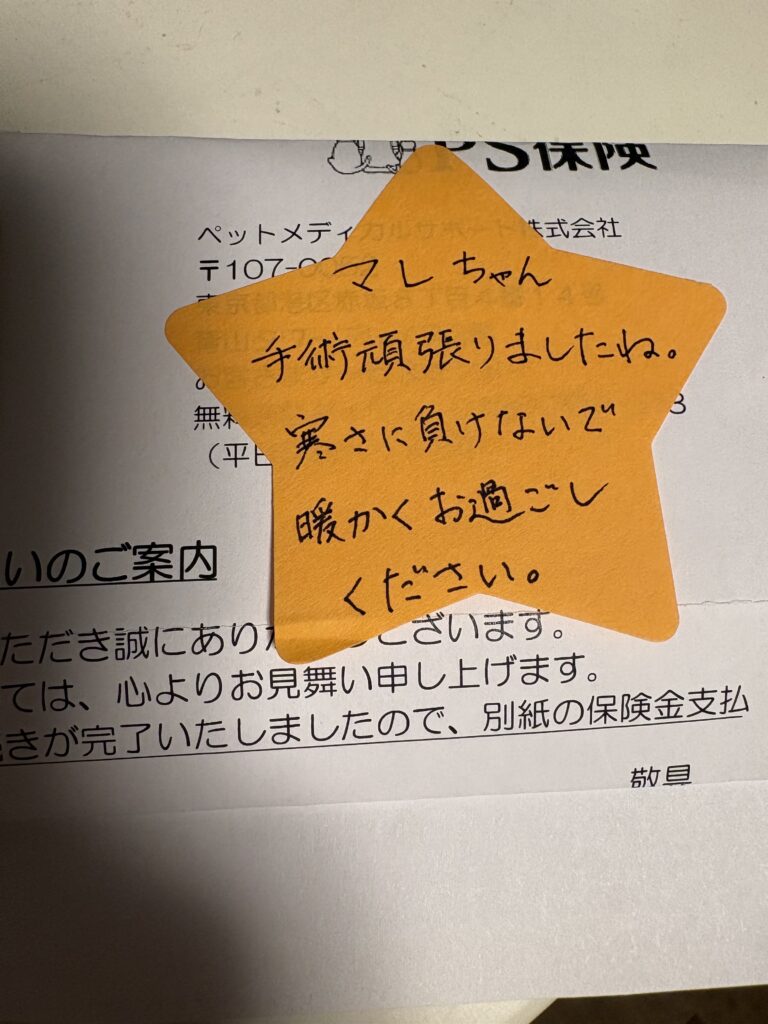 PS保険
ペットメディカルサポート株式会社
〒107-0
マレちゃん
手術頑張りましたね。
寒さに負けないで
暖かくお過ごし
ください。
無料
3
（平日
いのご案内
ただき誠にありがとうございます。
ては、心よりお見舞い申し上げます。
きが完了いたしましたので、別紙の保険金支払
敬具